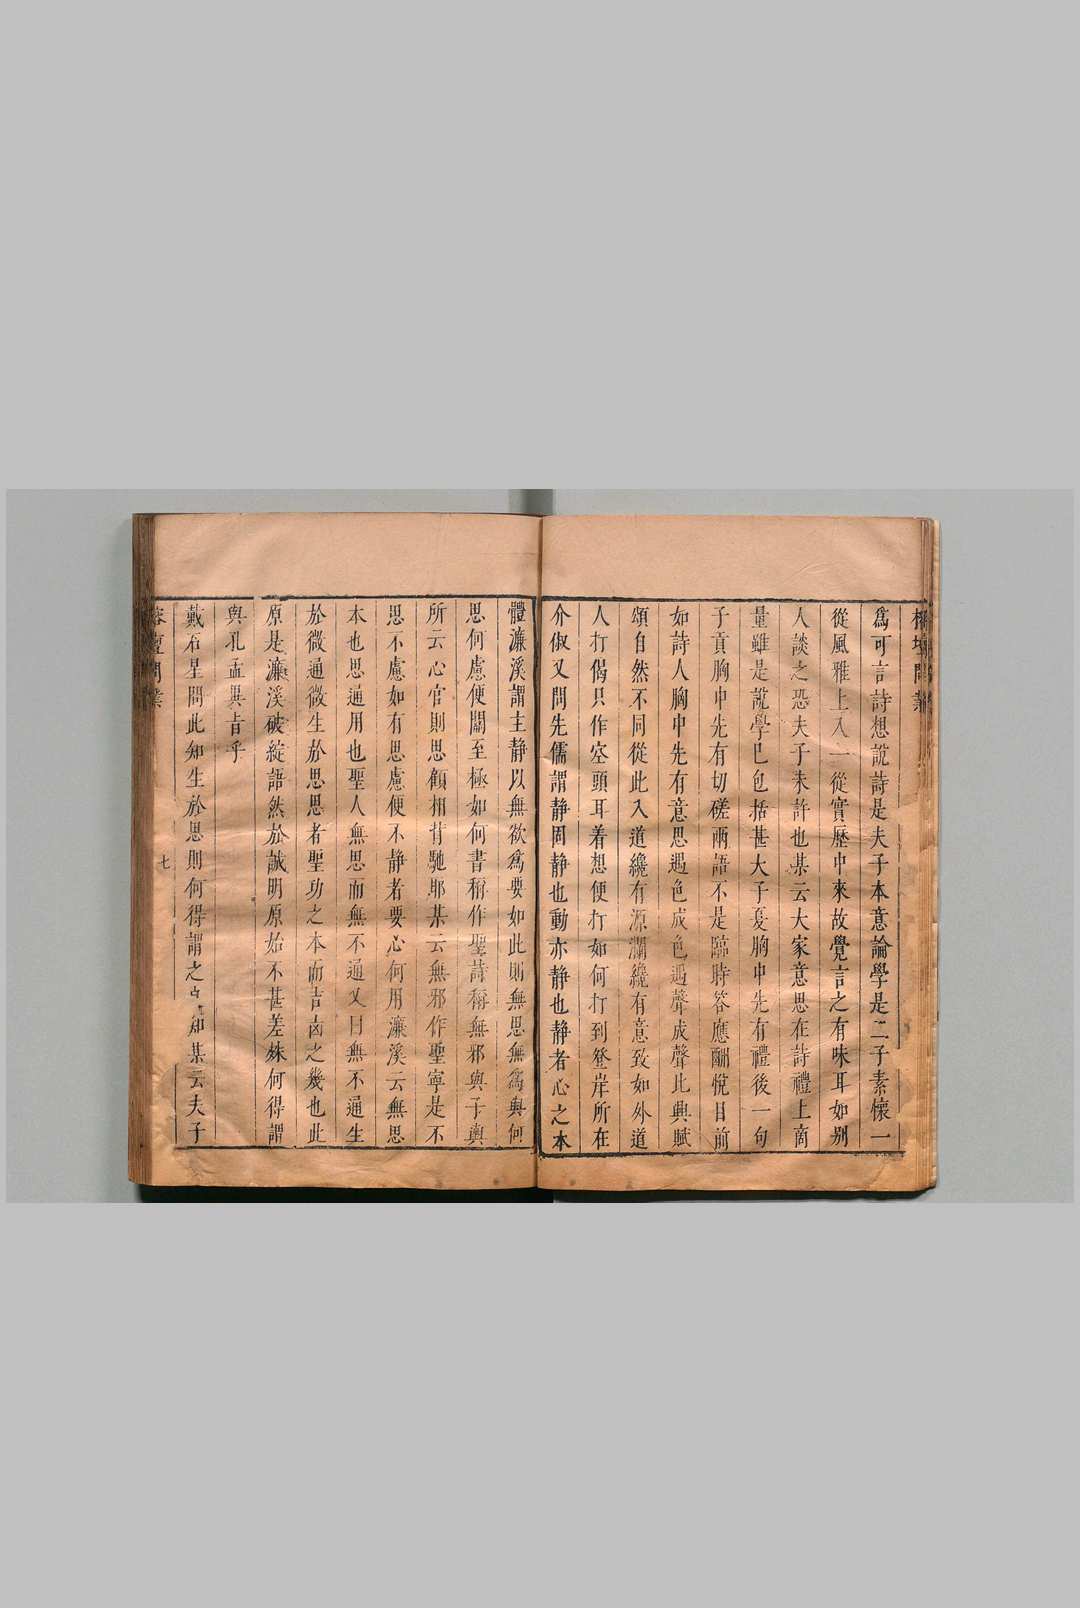 榕壇問業
爲可言詩想說詩是夫子本意論學是二子素懷一
從風雅上入一從實歷中來故覺言之有味耳如别
人談之恐夫子未許也某云大家意思在詩禮上商
量雖是說學已包括甚大子夏胸中先有禮後一句
子貢胸中先有切磋兩語不是臨時答應酬悅目前
如詩人胸中先有意思遇色成色遇聲成聲比興賦
頌自然不同從此入道纔有源瀾纔有意致如外道
人打偈只作空頭耳着想便打如何打到登岸所在
介俶又問先儒謂静固静也動亦静也静者心之本
體濂溪謂主静以無欲爲要如此則無思無爲與何
思何慮便關至極如何書稱作聖詩稱無邪與子輿
所云心官則思顧相背馳耶某云無邪作聖寧是不
思不慮如有思慮便不静者要心何用濂溪云無思
本也思通用也聖人無思而無不通又曰無不通生
於微通微生於思思者聖功之本而吉凶之幾也此
原是濂溪破綻語然於誠明原始不甚差殊何得謂
與孔孟異旨乎
戴石星問此知生於思則何得謂之 知某云夫子
榕壇問業
七